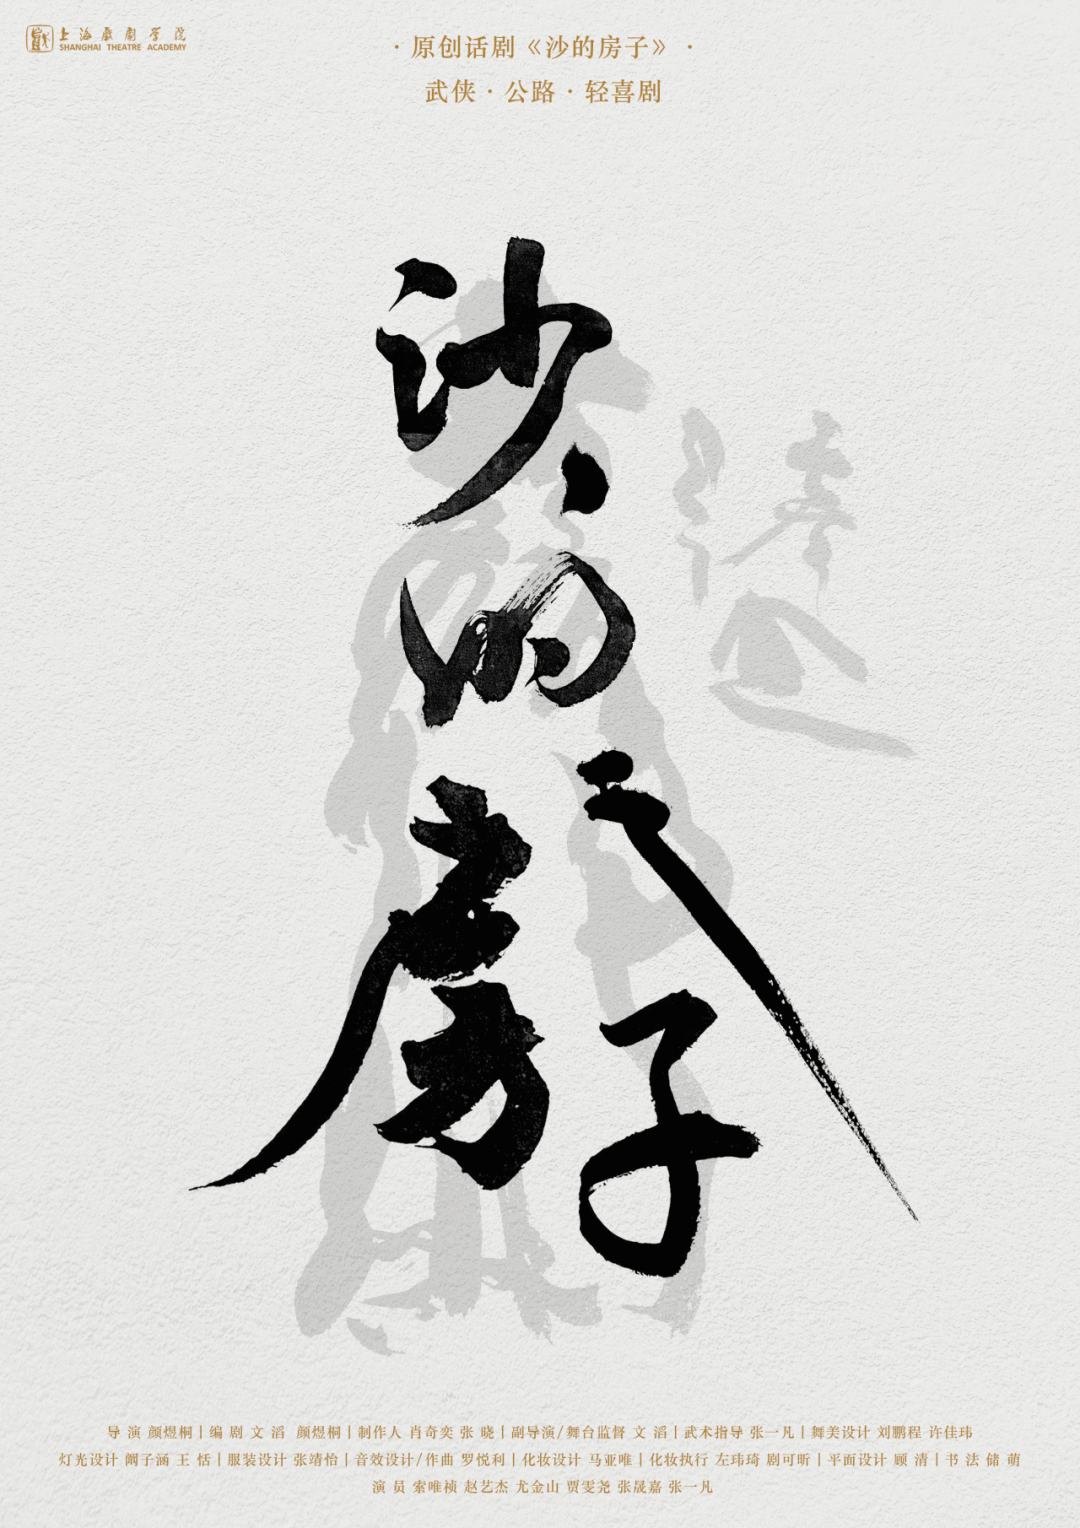 上海戲劇學院
SHANGHAI THEATRE ACADEMY
· 原创话剧《沙的房子》 ·
武侠 · 公路 · 轻喜剧
沙的房子
导 演 颜煜桐 | 编 剧 文 滔 颜煜桐 | 制作人 肖奇奕 张 晓 | 副导演/舞台监督 文 滔 | 武术指导 张一凡 | 舞美设计 刘鹏程 许佳玮
灯光设计 阚子涵 王 恬 | 服装设计 张靖怡 | 音效设计/作曲 罗悦利 | 化妆设计 马亚唯 | 化妆执行 左玮琦 剧可昕 | 平面设计 顾 清 | 书 法 储 萌
演 员 索唯祯 赵艺杰 尤金山 贾雯尧 张晟嘉 张一凡